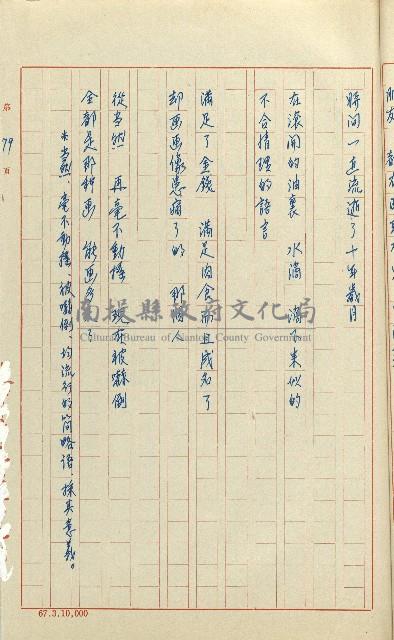 瞬间一直流逝了十年歲月
在滾開的油裏 水滴 滴下来似的
不合情理的語言
滿足了金錢 滿足肉食 而且成名了
却画画像患病了的 那個人
從当然 再毫不動搖 現在被嚇倒
全部是那种画 能画多了
※当然、毫不動搖、被嚇倒、均流行的简略语、採其意義。
第79頁
南投縣政府文化局
Cultural Bureau of Nantou County Government
67.3.10,000